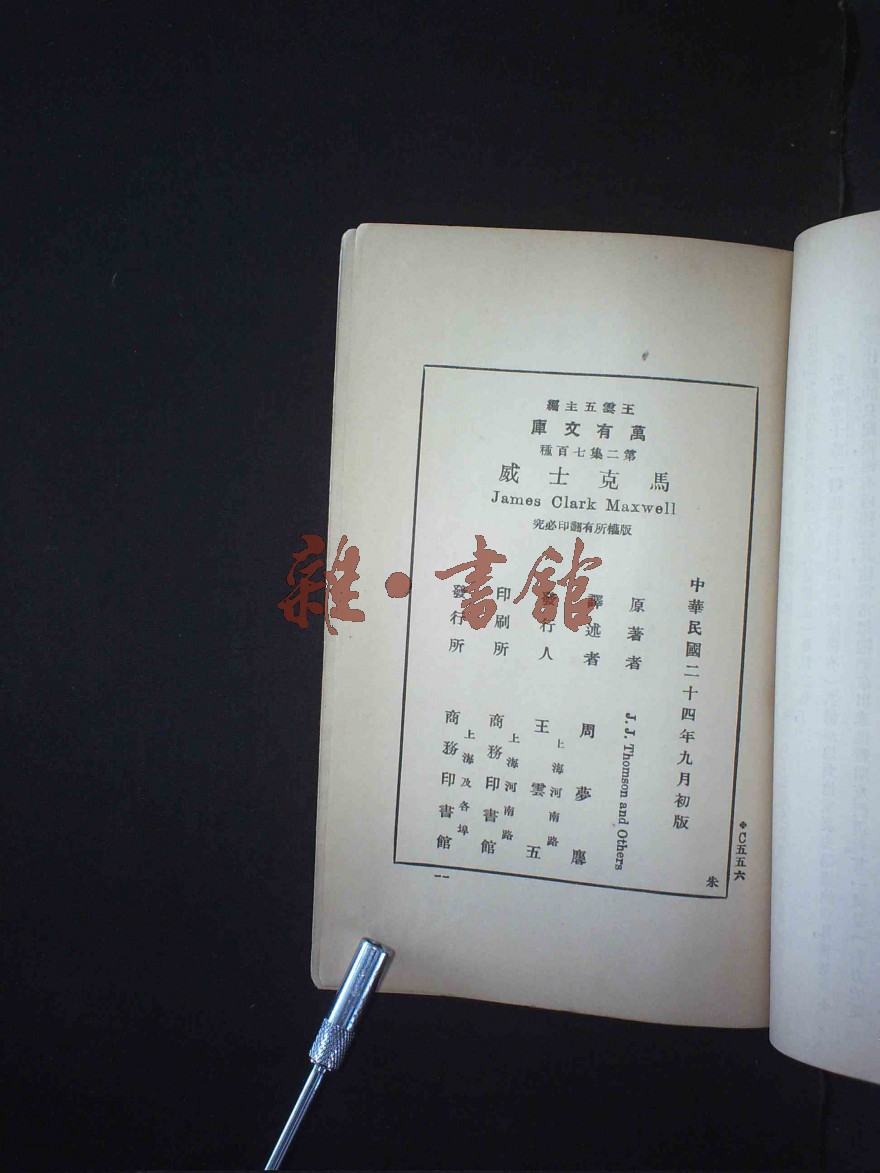 王雲五主編
萬有文庫
第二集七百種
馬克士威
James Clark Maxwell
版權所有翻印必究
中華民國二十四年九月初版
原著者 J. J. Thomson and Others
譯述者 周夢麐
發行人 王雲五
上海河南路
印刷所 商務印書館
上海河南路
發行所 商務印書館
上海及各埠
C五五六
朱
雜·書館